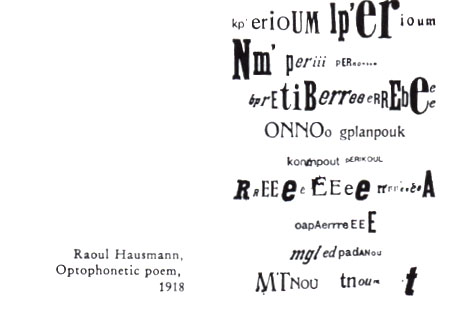 kp' erioUM lp'er ioum
Nm' periii
bprEtiBerreeeRREbeee
ONNOo gplanpouk
konmpout pERIKOUL
RrEEe e EEee
oapAerrreEEE
mgl ed padANou
MTNou tnoum t
Raoul Hausmann,
Optophonetic poem,
1918